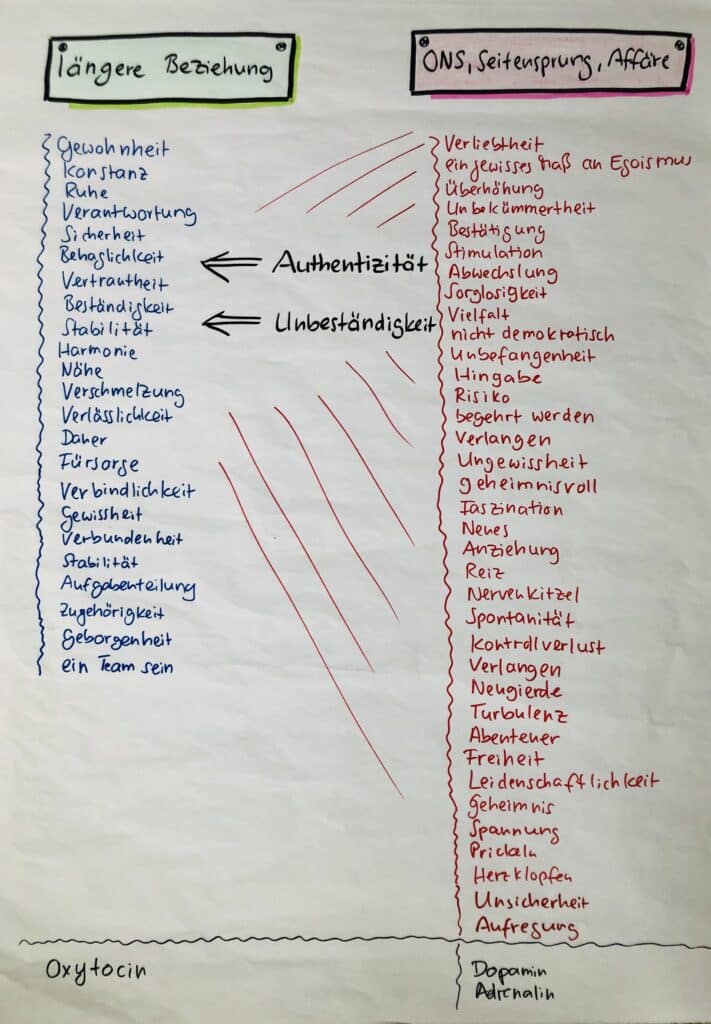 längere Beziehung
Gewohnheit
Konstanz
Ruhe
Verantwortung
Sicherheit
Behaglichkeit
Vertrautheit
Beständigkeit
Stabilität
Harmonie
Nähe
Verschmelzung
Verlässlichkeit
Daher
Fürsorge
Verbindlichkeit
Gewissheit
Verbundenheit
Stabilität
Aufgabenteilung
Zugehörigkeit
Geborgenheit
ein Team sein
Oxytocin
Authentizität
Unbeständigkeit
ONS, Seitensprung, Affäre
Verliebtheit
ein gewisses Maß an Egoismus
Überhöhung
Unbekümmertheit
Bestätigung
Stimulation
Abwechslung
Sorglosigkeit
Vielfalt
nicht demokratisch
Unbefangenheit
Hingabe
Risiko
begehrt werden
Verlangen
Ungewissheit
geheimnisvoll
Faszination
Neues
Anziehung
Reiz
Nervenkitzel
Spontanität
Kontrollverlust
Verlangen
Neugierde
Turbulenz
Abenteuer
Freiheit
Leidenschaftlichkeit
Geheimnis
Spannung
Prickeln
Herzklopfen
Unsicherheit
Aufregung
Dopamin
Adrenalin